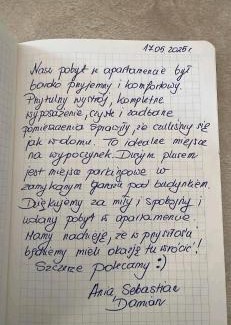 17.05.2025r
Nasz pobyt w apartamencie był
bardzo przyjemny i komfortowy.
Przytulny wystrój, kompletne
wyposażenie, czyste i zadbane
pomieszczenia sprawiły, że czuliśmy się
jak w domu. To idealne miejsce
na wypoczynek. Dużym plusem
jest miejsce parkingowe w
zamykanym garażu pod budynkiem.
Dziękujemy za miły i spokojny i
udany pobyt w apartamencie.
Mamy nadzieję, że w przyszłości
będziemy mieli okazję tu wrócić!
Szczerze polecamy :)
Ania Sebastian
Damian